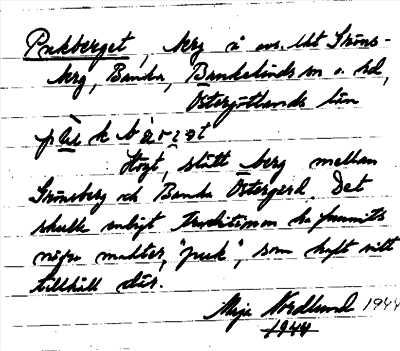 Pukberget, berg å ovs. lht Gröns-
berg, Banka, Bankekinds sn o. hd,
Östergötlands län
Högt, slätt berg mellan
Grönsberg och Banka Östergård. Det
skulle enligt traditionen ha funnits
några matter, "puk", som haft sitt
tillhåll där.
Maja Nordlund 1944
1944